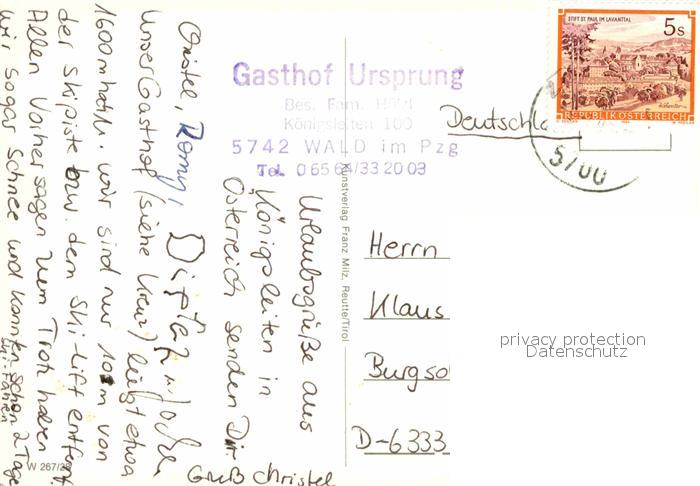 STIFT ST. PAUL IM LAVANTTAL
5s
REPUBLIK ÖSTERREICH
5700
Gasthof Ursprung
Bes. Fam.
Königsleiten 100
5742 WALD im Pzg
Tel. 0 65 64/33 20 03
Deutschla
Kunstverlag Franz Milz, Reutte/Tirol
Herrn
Klaus
Burgso
D-6333
privacy protection
Datenschutz
Urlaubsgrüße aus
Königsleiten in
Österreich senden Dir
Christel, Romy,
Unser Gasthof (siehe Kreuz) liegt etwa
1600m hoch. Wir sind nur 100m von
der Skipiste bzw. dem Ski-Lift entfernt.
Allen Vorhersagen zum Trotz haben
wir sogar Schnee und konnten schon 2 Tage
Ski fahren
Gruß Christel
W 267/28